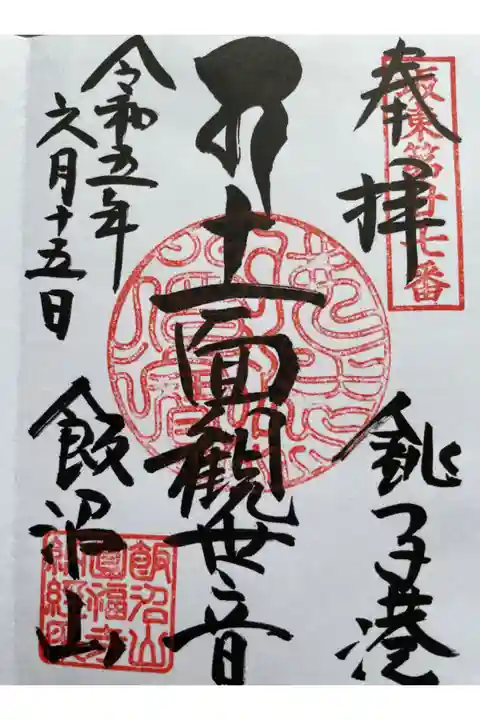 坂東第廿七番
奉拝
銚子港
十一面観世音
令和五年
六月十五日
飯沼山
飯沼山
圓福寺